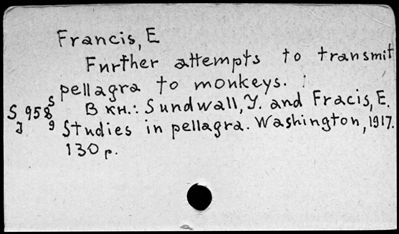 Francis, E
Further attempts to transmit
pellagra to monkeys.
В кн.: Sundwall, J. and Fracis, E.
Studies in pellagra. Washington, 1917.
130 p.
S 958